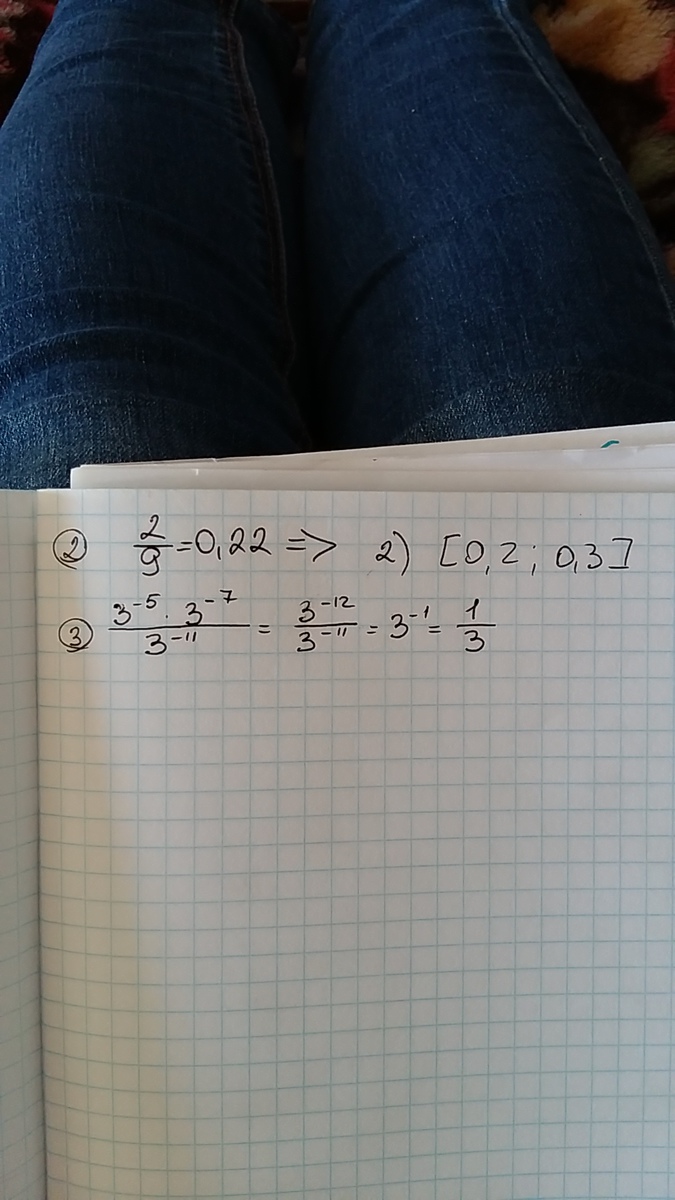 ② 2/9 = 0,22 => 2) [0,2 ; 0,3]
③ (3⁻⁵ · 3⁻⁷)/3⁻¹¹ = 3⁻¹²/3⁻¹¹ = 3⁻¹ = 1/3